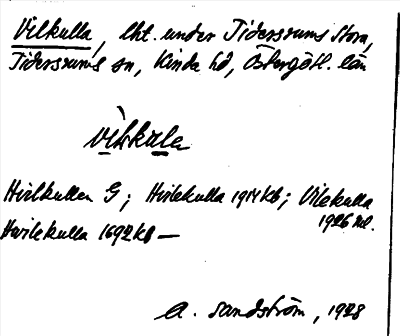 Vilkulla, lht. under Tidersrums Stora,
Tidersrums sn, Kinda hd, Östergötl. län
vilkula
Hvilkullen G; Hvilekulla 1914 kb; Vilekulla
1926 
Hvilekulla 1692 kb —
A. Sandström, 1928